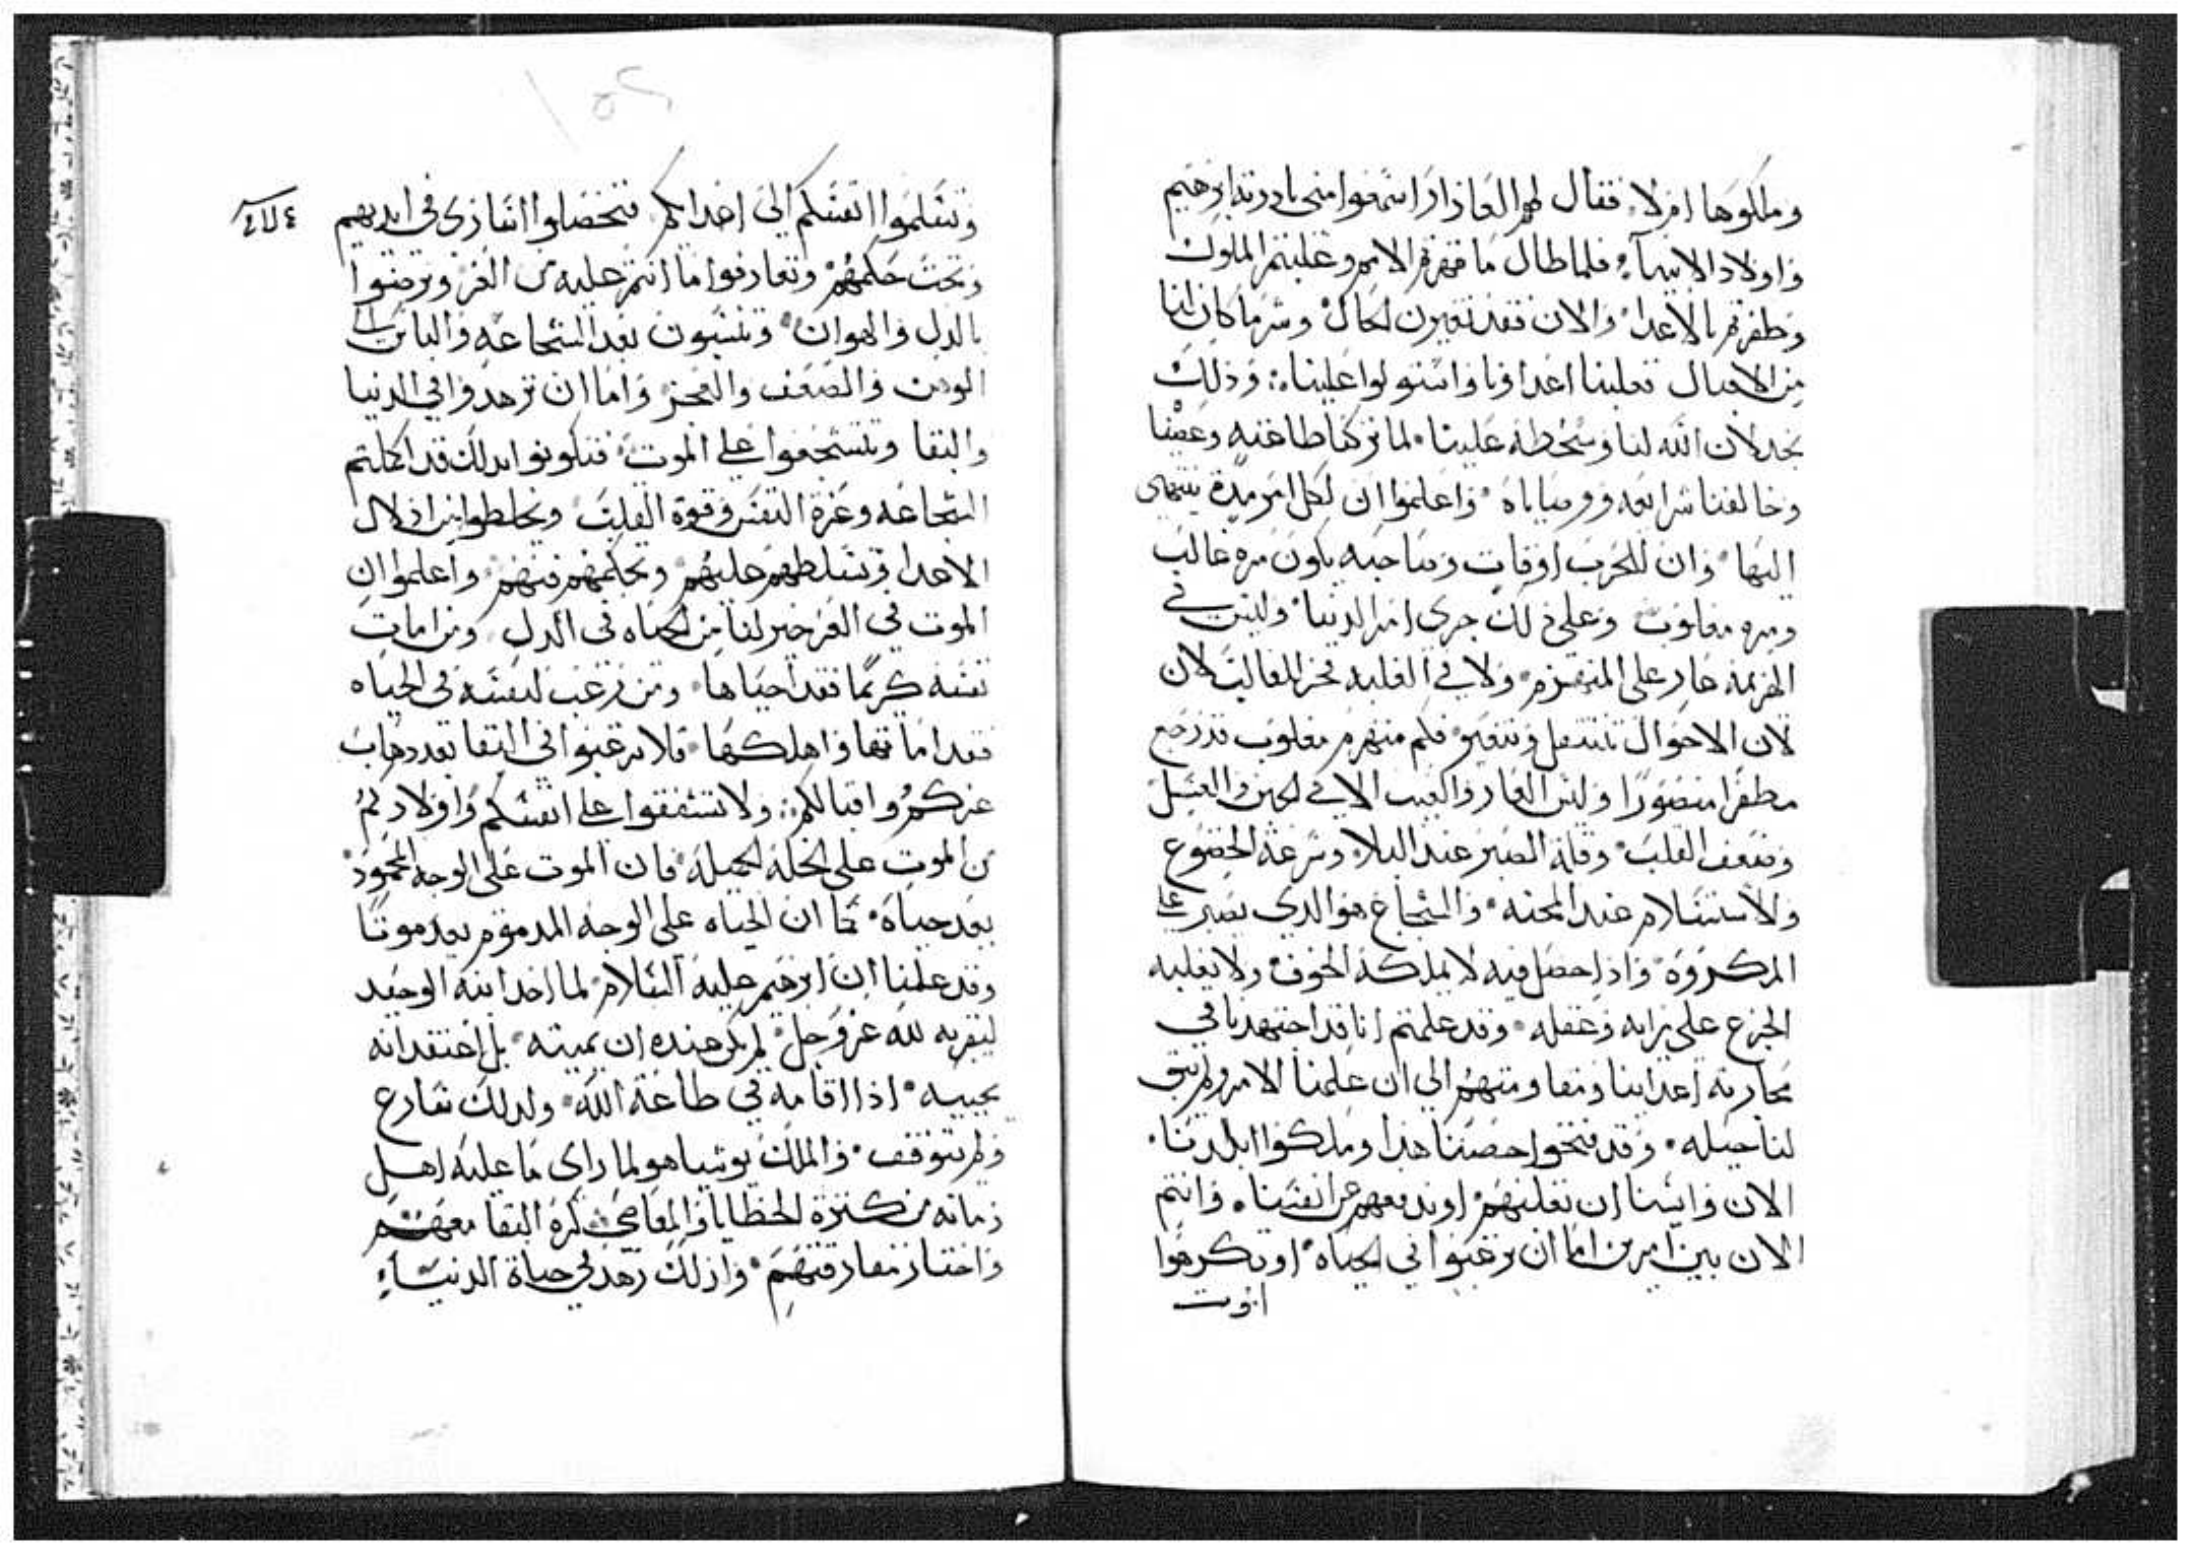 وملكوها ام لا فقال لهم العازار اسمعوا مني يا درية ابرهيم
واولاد الانبياء فلما طال ما قهرتم الامم وغلبتم الملوك
وظفرتم بالاعدا والان فقد تغيرت الحال وشر ما كان لنا
من الاقبال فغلبنا اعداونا واستولوا علينا وذلك
بخدلان الله لنا وسخطه علينا لما تركنا طاعته وعصينا
وخالفنا شرايعه ووصاياه واعلموا ان لكل امر مدة ينتهي
اليها وان للحرب اوقات وصاحبه يكون مره غالب
ومره مغلوب وعلى ذلك جرى امر الدنيا وليس في
الهزيمه عار على المنهزم ولا في الغلبه فخر للغالب لان
لان الاحوال تنتقل وتتغير فكم منهزم مغلوب قد رجع
مظفرا منصورا وليس العار والعيب الا في الجبن والفشل
وضعف القلب وقلة الصبر عند البلا وسرعة الخضوع
والاستسلام عند المحنه والشجاع هو الدي يصبر على
المكروه واذا حصل فيه لا يملكه الخوف ولا يغلبه
الجزع على رايه وعقله وقد علمتم انا قد اجتهدنا في
محاربة اعداينا ومقاومتهم الى ان علمنا الامر ولم يبق
لنا حيله وقد فتحوا حصننا هذا وملكوا بلدنا
الان وايسنا ان نغلبهم او ندفعهم عن انفسنا وانتم
الان بين امرين اما ان ترغبوا في الحياه او تكرهوا
الموت
وتسلموا انفسكم الى اعداكم فتحصلوا اسارى في ايديهم
وتحت حكمهم وتفارقوا ما انتم عليه من العز وترضوا
بالدل والهوان وتنسبون بعد الشجاعه والباس الى
الوهن والضعف والعجز واما ان تزهدوا في الدنيا
والبقا وتتشجعوا على الموت فتكونوا بدلك قد اكملتم
الشجاعه وعزة النفس وقوة القلب وتخلصوا من ادلال
الاعدا وتسلطهم عليهم وتحكمهم فيهم واعلموا ان
الموت في العز خير لنا من الحياه في الدل ومن امات
نفسه كريما فقد احياها ومن رغب لنفسه في الحياه
فقد اماتها واهلكها فلا ترغبوا في البقا بعد دهاب
عزكم واقبالكم ولا تشفقوا على انفسكم واولادكم
من الموت على الخلة الجميلة فان الموت على الوجه المحمود
يعد حياة كما ان الحياه على الوجه المدموم يعد موتا
وقد علمنا ان ابرهيم عليه السلام لما اخد ابنه الوحيد
ليقربه لله عز وجل لم يكن عنده ان يميته بل اعتقد انه
يحييه اذا اقامه في طاعة الله ولدلك سارع
ولم يتوقف والملك يوشياهو لما راى ما عليه اهل
زمانه من كثرة الخطايا والمعاصي كره البقا معهم
واختار مفارقتهم وادلك زهد في حياة الدنيا